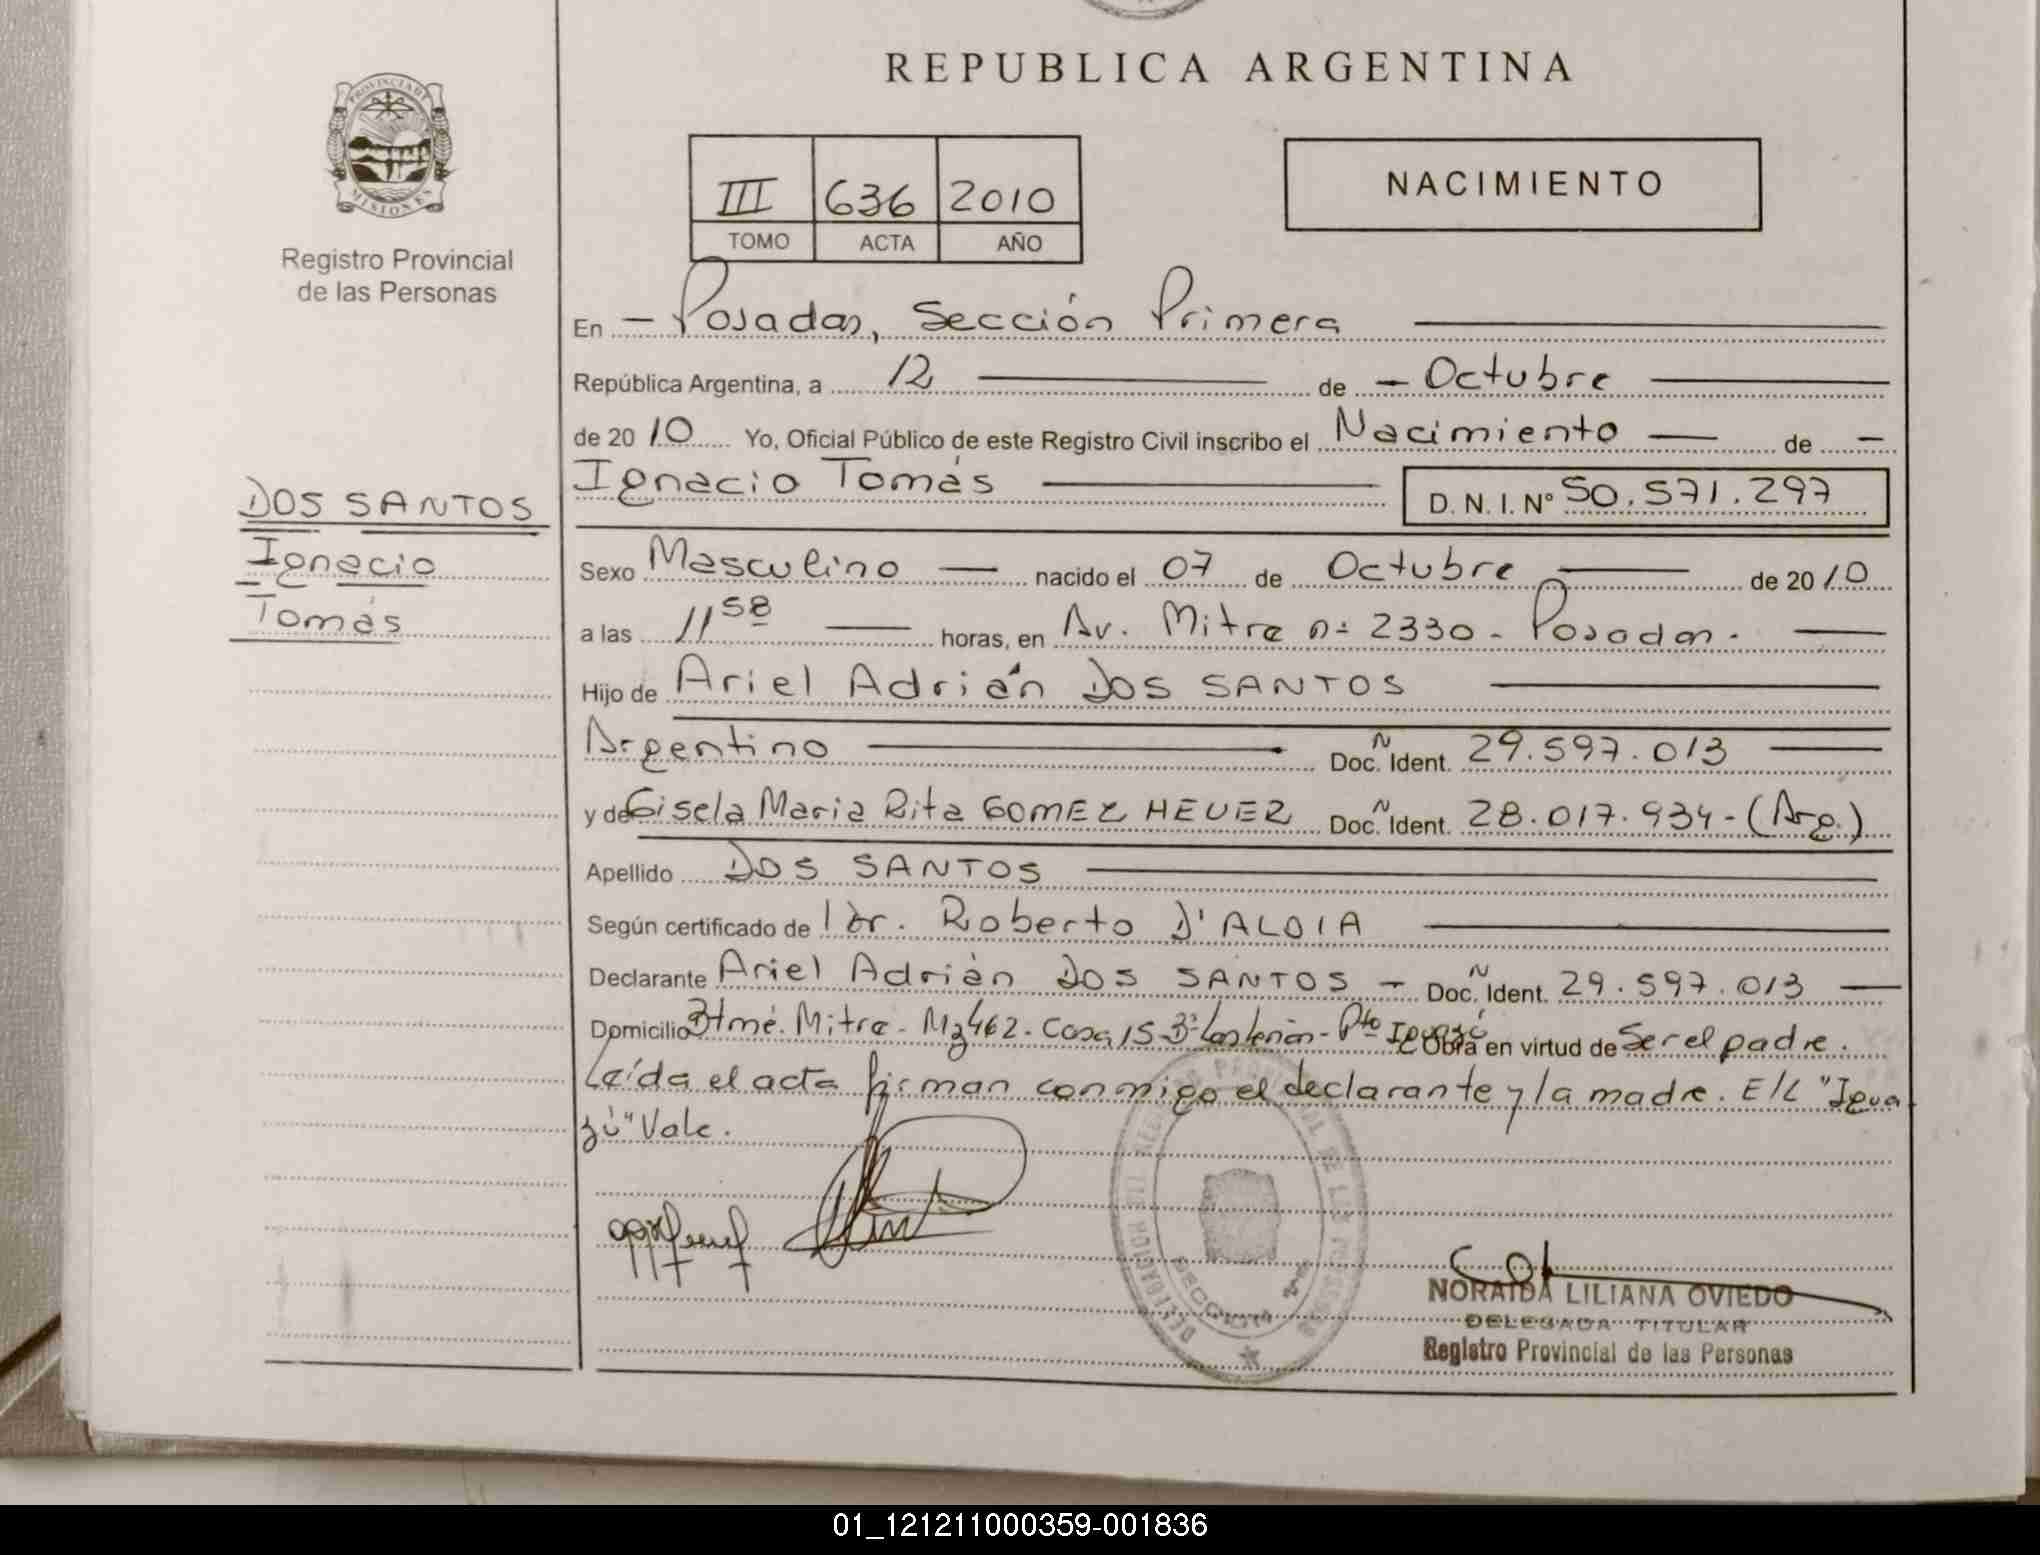 REPUBLICA ARGENTINA
PROVINCIA DE
MISIONES
Registro Provincial
de las Personas
III 636 2010
TOMO ACTA AÑO
NACIMIENTO
En - Posadas, Sección Primera
República Argentina, a 12 de - Octubre
de 2010 Yo, Oficial Público de este Registro Civil inscribo el Nacimiento de -
Ignacio Tomás D. N. I. Nº 50.571.297
DOS SANTOS
Ignacio
Tomás
Sexo Masculino nacido el 07 de Octubre de 2010
a las 11 58 horas, en Av. Mitre nº 2330 - Posadas.
Hijo de Ariel Adrián DOS SANTOS
Argentino Doc. Ñ Ident. 29.597.013
y de Gisela Maria Rita GOMEZ HEUER Doc. Ñ Ident. 28.017.934 - (Arg.)
Apellido DOS SANTOS
Según certificado de Dr. Roberto D'ALOIA
Declarante Ariel Adrián DOS SANTOS - Doc. Ñ Ident. 29.597.013
Domicilio Btmé. Mitre - Mz 462 - Casa 15 - Bº - Pto Iguazú Obra en virtud de Ser el padre.
Leída el acta firman conmigo el declarante y la madre. E/L "Igua
zú" Vale.
NORAIDA LILIANA OVIEDO
DELEGADA TITULAR
Registro Provincial de las Personas
01_121211000359-001836